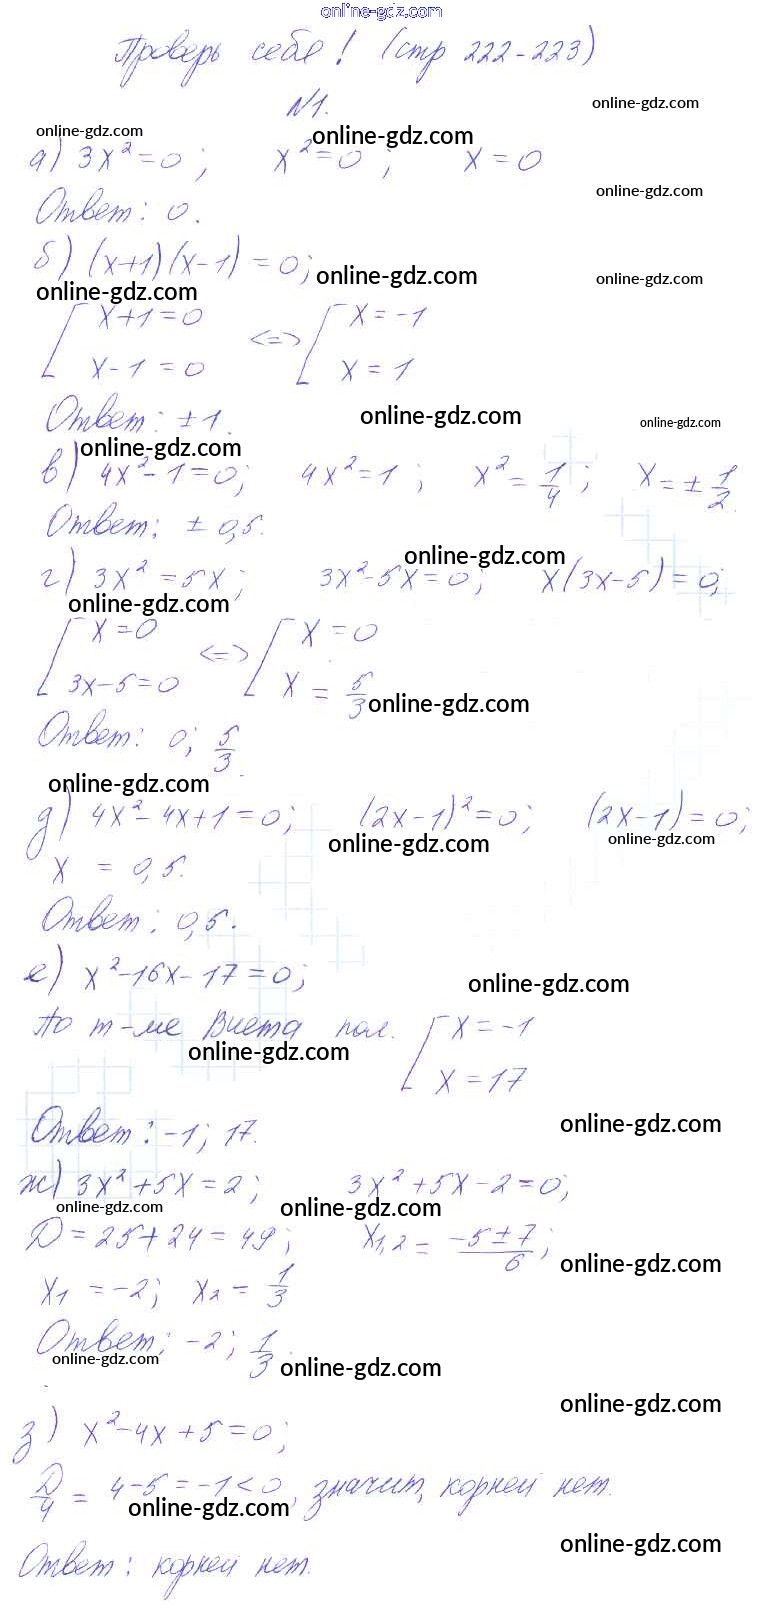 online-gdz.com
Проверь себя! (стр 222-223)
№1.
online-gdz.com
online-gdz.com
online-gdz.com
а) 3x²=0; x²=0; x=0
online-gdz.com
Ответ: 0.
б) (x+1)(x-1)=0;
online-gdz.com
online-gdz.com
online-gdz.com
[ x+1=0 <=> [ x=-1
x-1=0 x=1
Ответ: ±1.
online-gdz.com
online-gdz.com
online-gdz.com
в) 4x²-1=0; 4x²=1; x²=1/4; x=±1/2.
Ответ: ±0,5.
online-gdz.com
г) 3x²=5x; 3x²-5x=0; x(3x-5)=0;
online-gdz.com
[ x=0 <=> [ x=0
3x-5=0 x=5/3
online-gdz.com
Ответ: 0; 5/3.
online-gdz.com
д) 4x²-4x+1=0; (2x-1)²=0; (2x-1)=0;
online-gdz.com
online-gdz.com
x = 0,5.
Ответ: 0,5.
е) x²-16x-17=0;
online-gdz.com
По т-ме Виета пол. [ x=-1
x=17
online-gdz.com
online-gdz.com
Ответ: -1; 17.
ж) 3x²+5x=2; 3x²+5x-2=0;
online-gdz.com
online-gdz.com
D=25+24=49; x1,2=(-5±7)/6;
online-gdz.com
x1=-2; x2=1/3
Ответ: -2; 1/3.
online-gdz.com
online-gdz.com
online-gdz.com
з) x²-4x+5=0;
D/4=4-5=-1<0, значит, корней нет.
online-gdz.com
online-gdz.com
Ответ: корней нет.